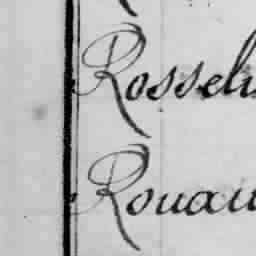 Rosseli
Rouau